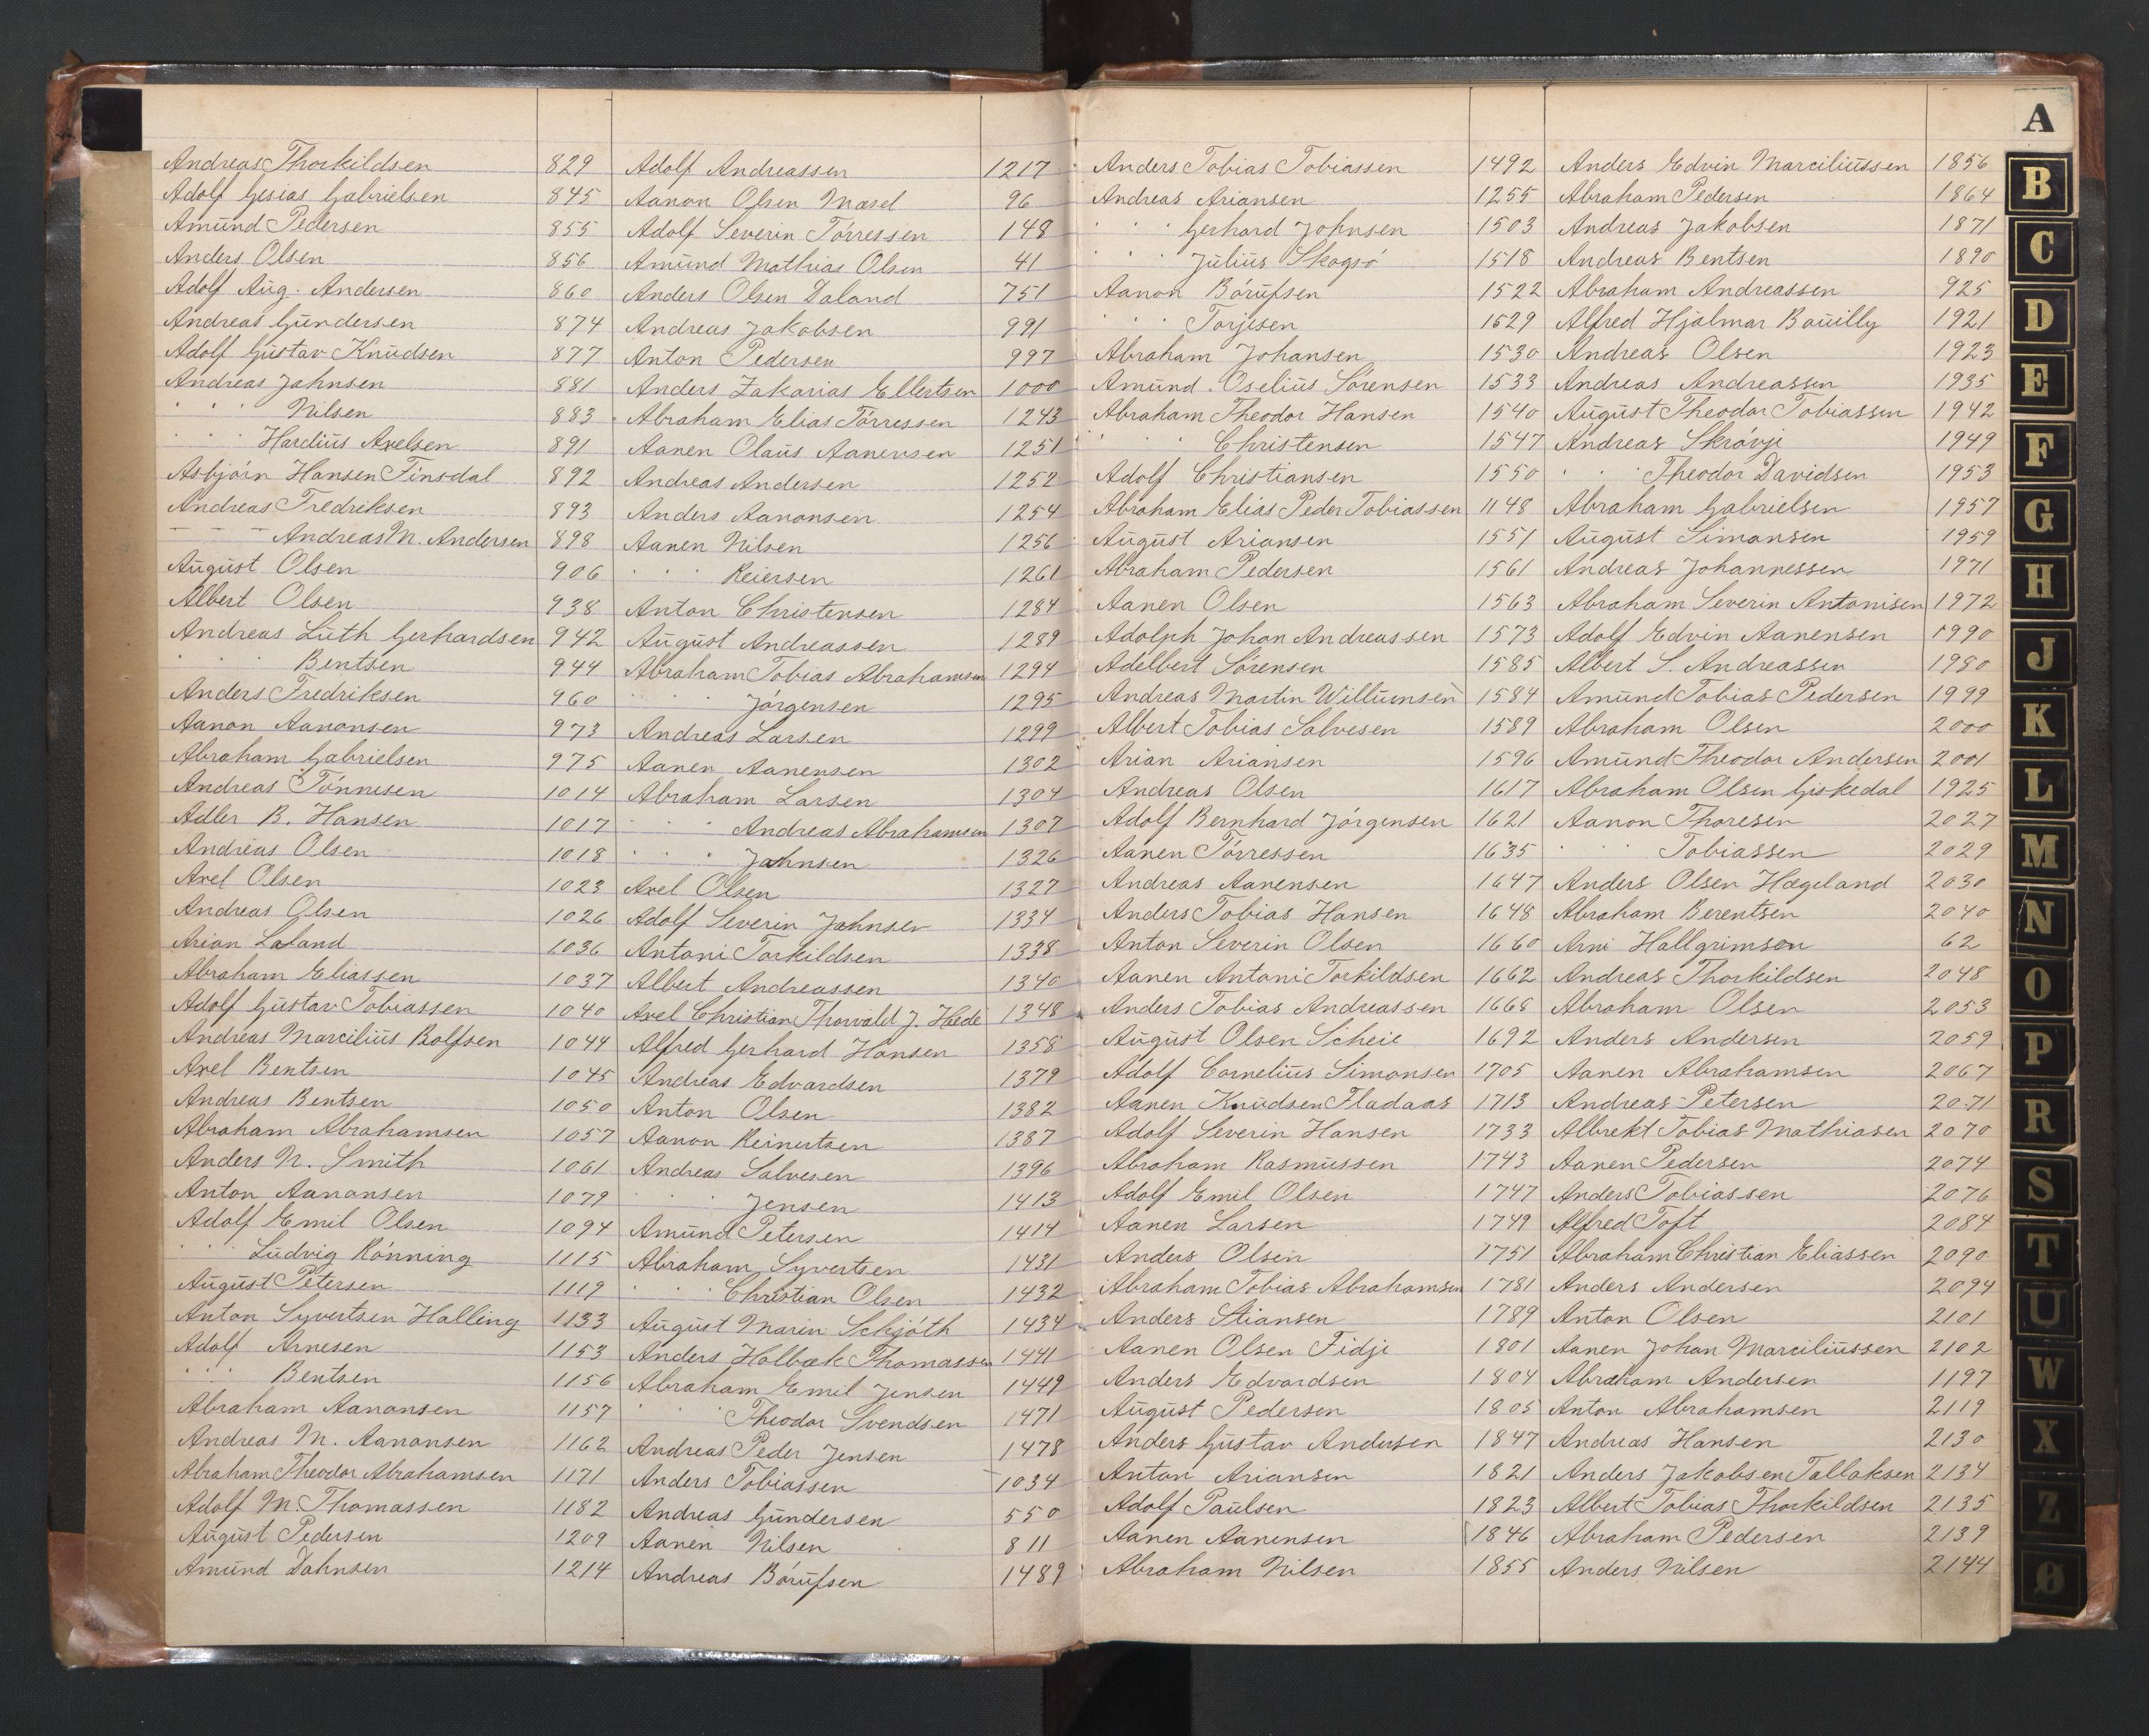 Andreas Thorkildsen 829
Adolf Gesias Gabrielsen 845
Amund Pedersen 855
Anders Olsen 856
Adolf Aug. Andersen 860
Andreas Gundersen 874
Adolf Gustav Knudsen 877
Andreas Jahnsen 881
" " " Nilsen 883
" " " Hardius Axelsen 891
Asbjörn Hansen Finsdal 892
Andreas Fredriksen 893
– – – Andreas M. Andersen 898
August Olsen 906
Albert Olsen 938
Andreas Luth Gerhardsen 942
" " " Bentsen 944
Anders Fredriksen 960
Aanon Aanonsen 973
Abraham Gabrielsen 975
Andreas Tönnesen 1014
Adler B. Hansen 1017
Andreas Olsen 1018
Axel Olsen 1023
Andreas Olsen 1026
Arian Laland 1036
Abraham Eliassen 1037
Adolf Gustav Tobiassen 1040
Andreas Marcilius Rolfsen 1044
Axel Bentsen 1045
Andreas Bentsen 1050
Abraham Abrahamsen 1057
Anders N. Smith 1061
Anton Aanonsen 1079
Adolf Emil Olsen 1094
" " Ludvig Rönning 1115
August Petersen 1119
Anton Syvertsen Halling 1133
Adolf Arnesen 1153
" " " Bentsen 1156
Abraham Aanonsen 1157
Andreas M. Aanonsen 1162
Abraham Theodor Abrahamsen 1171
Adolf M. Thomassen 1182
August Pedersen 1209
Amund Dahnsen 1214
Adolf Andreassen 1217
Aanon Olsen Mosel 96
Adolf Severin Törressen 148
Amund Mathias Olsen 41
Anders Olsen Daland 751
Andreas Jakobsen 991
Anton Pedersen 997
Anders Zakarias Ellertsen 1000
Abraham Elias Törressen 1243
Aanen Olaus Aanensen 1251
Andreas Andersen 1252
Anders Aanonsen 1254
Aanen Nilsen 1256
" " " Reiersen 1261
Anton Christensen 1284
August Andreassen 1289
Abraham Tobias Abrahamsen 1294
" " " Jörgensen 1295
Andreas Larsen 1299
Aanen Aanensen 1302
Abraham Larsen 1304
" " " Andreas Abrahamsen 1307
" " " Jahnsen 1326
Axel Olsen 1327
Adolf Severin Jahnsen 1334
Antoni Torkildsen 1338
Albert Andreassen 1340
Axel Christian Thorvald J. Heede 1348
Alfred Gerhard Hansen 1358
Andreas Edvardsen 1379
Anton Olsen 1382
Aanon Reinertsen 1387
Andreas Salvesen 1396
" " " Jensen 1413
Amund Petersen 1414
Abraham Syvertsen 1431
" " " Christian Olsen 1432
August Marin Schjöth 1434
Anders Holbæk Thomassen 1441
Abraham Emil Jensen 1449
" " " Theodor Svendsen 1471
Andreas Peder Jensen 1478
Anders Tobiassen 1034
Andreas Gundersen 550
Aanen Nilsen 811
Andreas Börufsen 1489
Anders Tobias Tobiassen 1492
Andreas Ariansen 1255
" " " Gerhard Johnsen 1503
" " " Julius Skogsö 1518
Aanon Börufsen 1522
" " " Torjisen 1529
Abraham Johansen 1530
Amund Oselius Sörensen 1533
Abraham Theodor Hansen 1540
" " " Christensen 1547
Adolf Christiansen 1550
Abraham Elias Peder Tobiassen 1148
August Ariansen 1551
Abraham Pedersen 1561
Aanen Olsen 1563
Adolph Johan Andreassen 1573
Adelbert Sörensen 1585
Andreas Martin Willumsen 1584
Albert Tobias Salvesen 1589
Arian Ariansen 1596
Andreas Olsen 1617
Adolf Bernhard Jörgensen 1621
Aanen Törressen 1635
Andreas Aanensen 1647
Anders Tobias Hansen 1648
Anton Severin Olsen 1660
Aanen Antoni Torkildsen 1662
Anders Tobias Andreassen 1668
August Olsen Scheie 1692
Adolf Cornelius Simonsen 1705
Aanen Knudsen Fladaas 1713
Adolf Severin Hansen 1733
Abraham Rasmussen 1743
Adolf Emil Olsen 1747
Aanen Larsen 1749
Anders Olsen 1751
Abraham Tobias Abrahamsen 1781
Anders Stiansen 1789
Aanen Olsen Fidje 1801
Anders Edvardsen 1804
August Pedersen 1805
Anders Gustav Andersen 1847
Anton Ariansen 1821
Adolf Paulsen 1823
Aanen Aanensen 1846
Abraham Nilsen 1855
Anders Edvin Marciliussen 1856
Abraham Pedersen 1864
Andreas Jakobsen 1871
Andreas Bentsen 1890
Abraham Andreassen 925
Alfred Hjalmar Bouilly 1921
Andreas Olsen 1923
Andreas Andreassen 1935
August Theodor Tobiassen 1942
Andreas Skrövje 1949
" " " Theodor Davidsen 1953
Abraham Gabrielsen 1957
August Simonsen 1959
Andreas Johannessen 1971
Abraham Severin Antonisen 1972
Adolf Edvin Aanensen 1990
Albert S. Andreassen 1980
Amund Tobias Pedersen 1999
Abraham Olsen 2000
Amund Theodor Andersen 2001
Abraham Olsen Giskedal 1925
Aanon Thoresen 2027
" " " Tobiassen 2029
Anders Olsen Hægeland 2030
Abraham Berentsen 2040
Arni Hallgrimson 62
Andreas Thorkildsen 2048
Abraham Olsen 2053
Anders Andersen 2059
Aanen Abrahamsen 2067
Andreas Petersen 2071
Albrekt Tobias Mathiasen 2070
Aanen Pedersen 2074
Anders Tobiassen 2076
Alfred Toft 2084
Abraham Christian Eliassen 2090
Anders Andersen 2094
Anton Olsen 2101
Aanen Johan Marciliussen 2102
Abraham Andersen 1197
Anton Abrahamsen 2119
Andreas Hansen 2130
Anders Jakobsen Tallaksen 2134
Albert Tobias Thorkildsen 2135
Abraham Pedersen 2139
Anders Nilsen 2144
A
B
C
D
E
F
G
H
J
K
L
M
N
O
P
R
S
T
U
W
X
Z
Ø